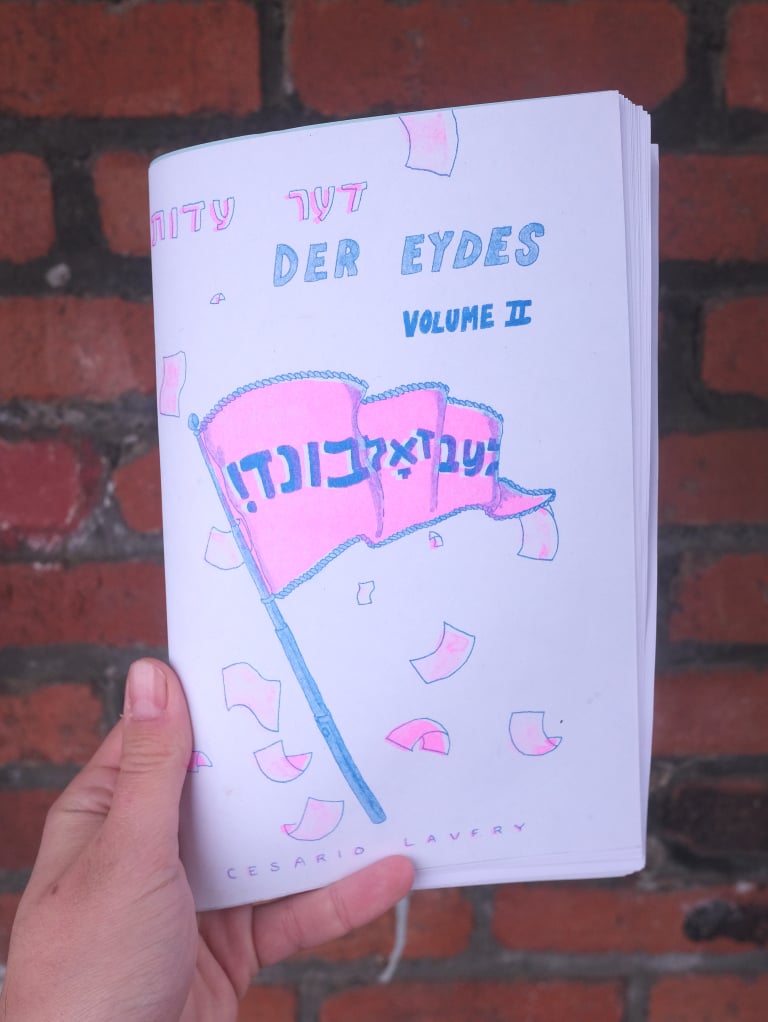 דער עדות
DER EYDES
VOLUME II
לעב זאָל בונד!
CESARIO LAVERY